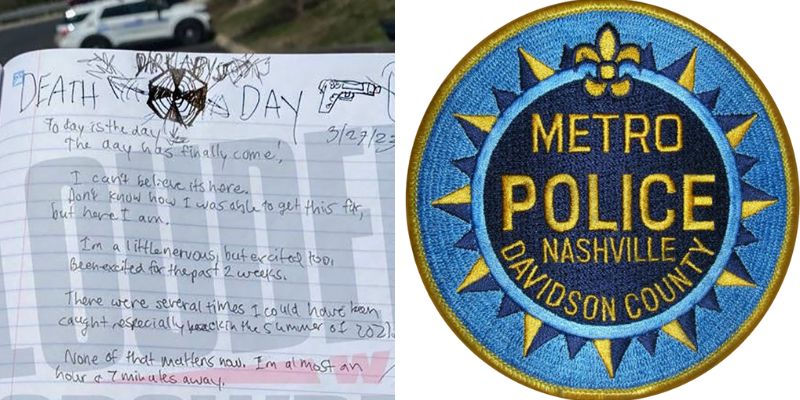 DEATH DAY
3/27/23
Today is the day
The day has finally come!
I can't believe its here.
Don't know how I was able to get this far,
but here I am.
I'm a little nervous, but excited too.
Been excited for the past 2 weeks.
There were several times I could have been
caught, especially back in the summer of 2021.
None of that matters now. I'm almost an
hour & 7 minutes away.
METRO
POLICE
NASHVILLE
DAVIDSON COUNTY